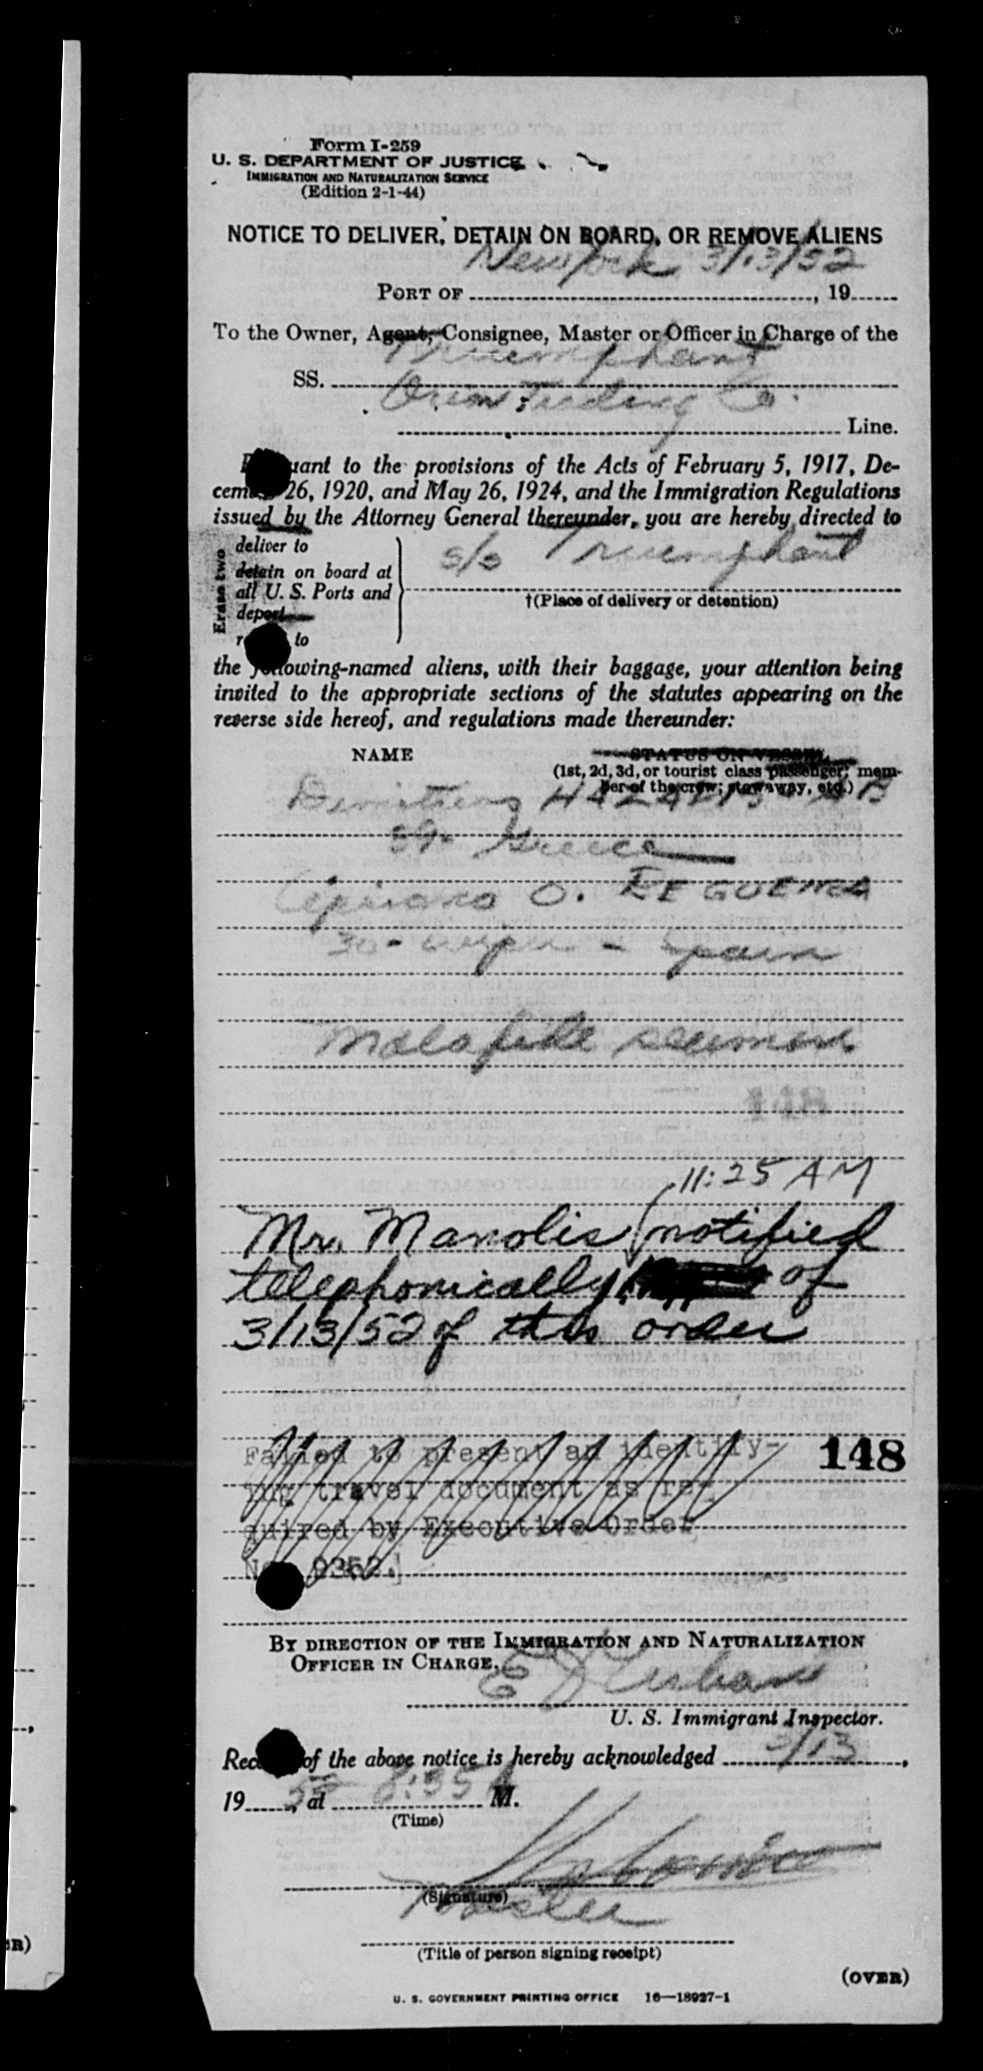 Form I-259
U. S. DEPARTMENT OF JUSTICE
IMMIGRATION AND NATURALIZATION SERVICE
(Edition 2-1-44)
NOTICE TO DELIVER, DETAIN ON BOARD, OR REMOVE ALIENS
New York 3/13/52
PORT OF , 19
To the Owner, Agent, Consignee, Master or Officer in Charge of the
Triumphant
SS.
Orion Co.
Line.
Pursuant to the provisions of the Acts of February 5, 1917, De-
cember 26, 1920, and May 26, 1924, and the Immigration Regulations
issued by the Attorney General thereunder, you are hereby directed to
Erase two
deliver to
detain on board at
all U. S. Ports and
deport
to
s/s Triumphant
†(Place of delivery or detention)
the following-named aliens, with their baggage, your attention being
invited to the appropriate sections of the statutes appearing on the
reverse side hereof, and regulations made thereunder:
NAME
STATUS ON VESSEL
(1st, 2d, 3d, or tourist class passenger; mem-
ber of the crew; stowaway, etc.)
AB
Greece
O. REGUENGA
30 - wiper - Spain
Malafide seamen
148
11:25 AM
Mr. Manolis notified
telephonically of
3/13/52 of this order
Failed to present an identify-
ing travel document as re-
quired by Executive Order
No. 9352.
148
BY DIRECTION OF THE IMMIGRATION AND NATURALIZATION
OFFICER IN CHARGE.
E Urban
U. S. Immigrant Inspector.
Receipt of the above notice is hereby acknowledged 3/13,
19 52, at 8:35 A M.
(Time)
(Signature)
Master
(Title of person signing receipt)
(OVER)
U. S. GOVERNMENT PRINTING OFFICE 16—18927-1